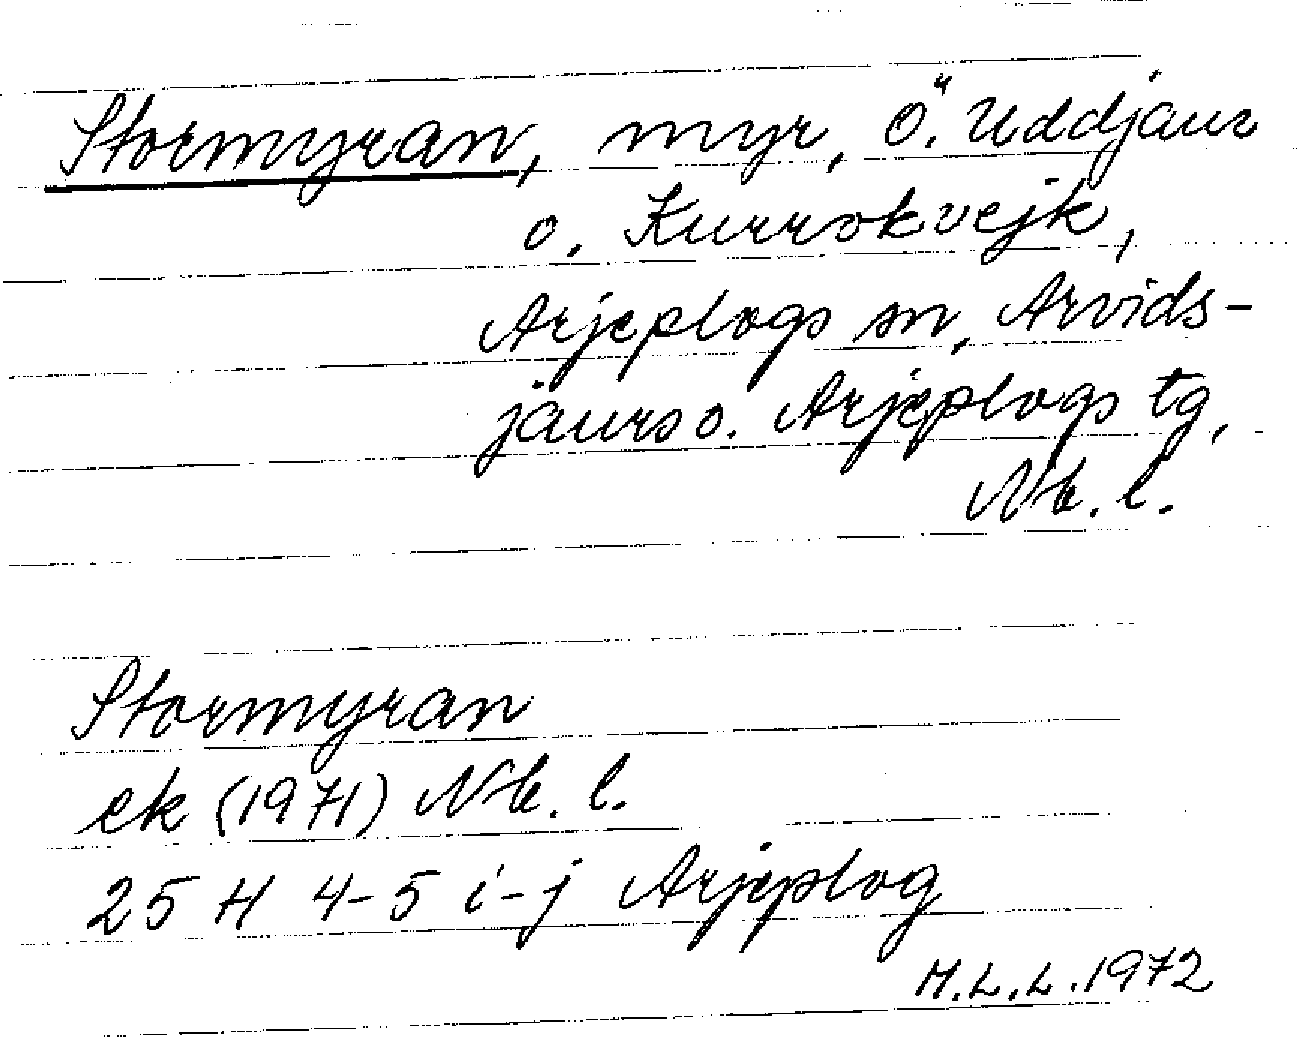 Stormyran, myr, Ö. Uddjaur
o. Kurrokvejk,
Arjeplogs sn, Arvids-
jaurs o. Arjeplogs tg,
Nb. l.
Stormyran
ek (1971) Nb. l.
25 H 4-5 i-j Arjeplog
M.L.L. 1972